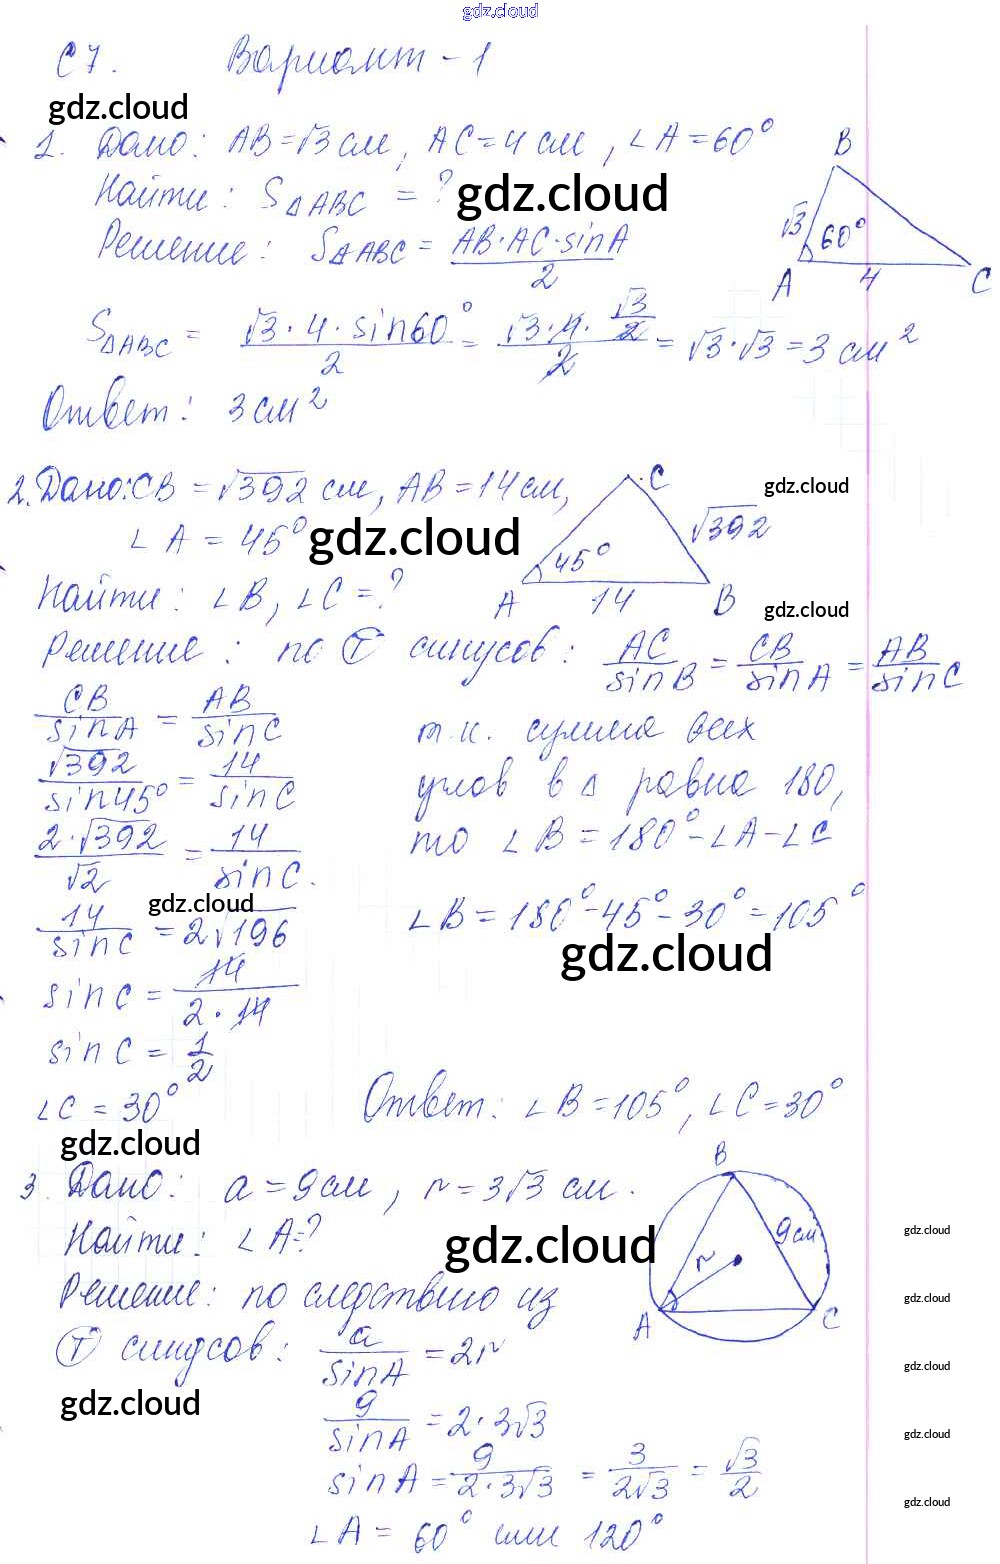 gdz.cloud
С 7. Вариант - 1
gdz.cloud
1. Дано: AB = √3 см, AC = 4 см, ∠A = 60°
Найти: S△ABC = ?
gdz.cloud
Решение: S△ABC = AB·AC·sinA / 2
B
√3 60°
A 4 C
S△ABC = √3·4·sin60° / 2 = √3·4·√3/2 / 2 = √3·√3 = 3 см²
Ответ: 3 см²
2. Дано: CB = √392 см, AB = 14 см,
gdz.cloud
∠A = 45°
gdz.cloud
C
√392
45°
A 14 B
Найти: ∠B, ∠C = ?
gdz.cloud
Решение: по Т синусов: AC/sinB = CB/sinA = AB/sinC
CB/sinA = AB/sinC
√392/sin45° = 14/sinC
2·√392/√2 = 14/sinC.
gdz.cloud
14/sinC = 2√196
sinC = 14/2·14
sinC = 1/2
∠C = 30°
т.к. сумма всех
углов в △ равна 180,
то ∠B = 180° - ∠A - ∠C
∠B = 180° - 45° - 30° = 105°
gdz.cloud
Ответ: ∠B = 105°, ∠C = 30°
gdz.cloud
3. Дано: a = 9 см, r = 3√3 см.
Найти: ∠A = ?
gdz.cloud
B
9 см
r
A C
gdz.cloud
Решение: по следствию из
gdz.cloud
Т синусов: a/sinA = 2r
gdz.cloud
gdz.cloud
9/sinA = 2·3√3
gdz.cloud
sinA = 9/2·3√3 = 3/2√3 = √3/2
gdz.cloud
∠A = 60° или 120°